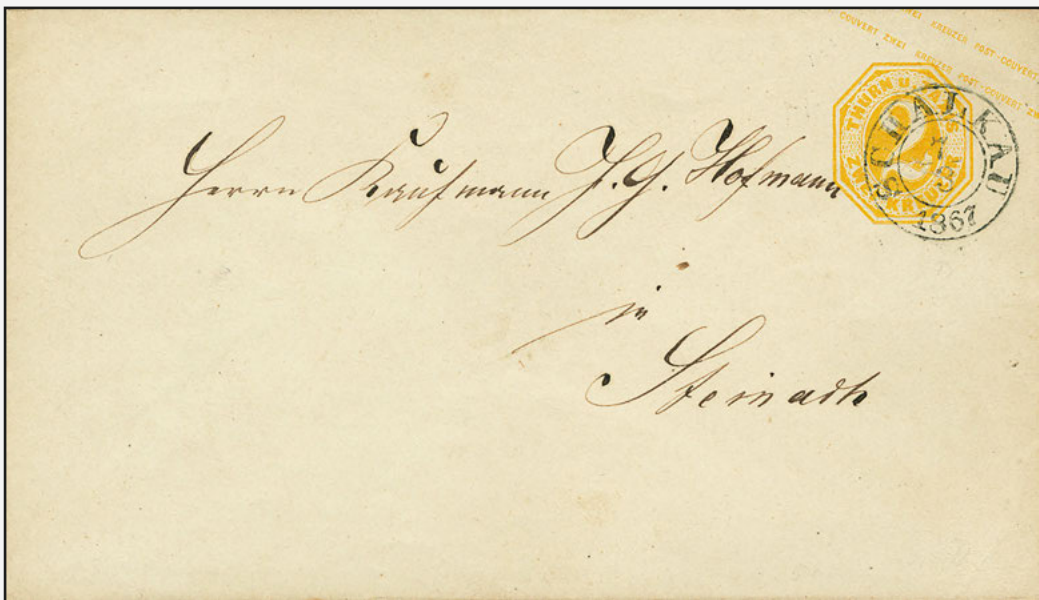 COUVERT ZWEI KREUZER POST-COUVERT
ZWEI KREUZER POST-COUVERT
THURN U. TAXIS
ZWEI KREUZER
SCHALKAU
APR
1867
Herrn Kaufmann J. G. Hofmann
in
Steinach